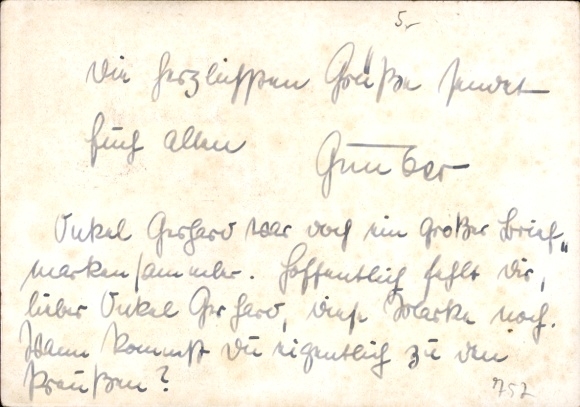 5,-
Die herzlichsten Grüße sendet
Euch allen Günter
Onkel Gerhard war doch ein großer Brief„
markensammler. Hoffentlich fehlt Dir,
lieber Onkel Gerhard, diese Marke noch.
Wann kommst Du eigentlich zu den
Preußen?
752